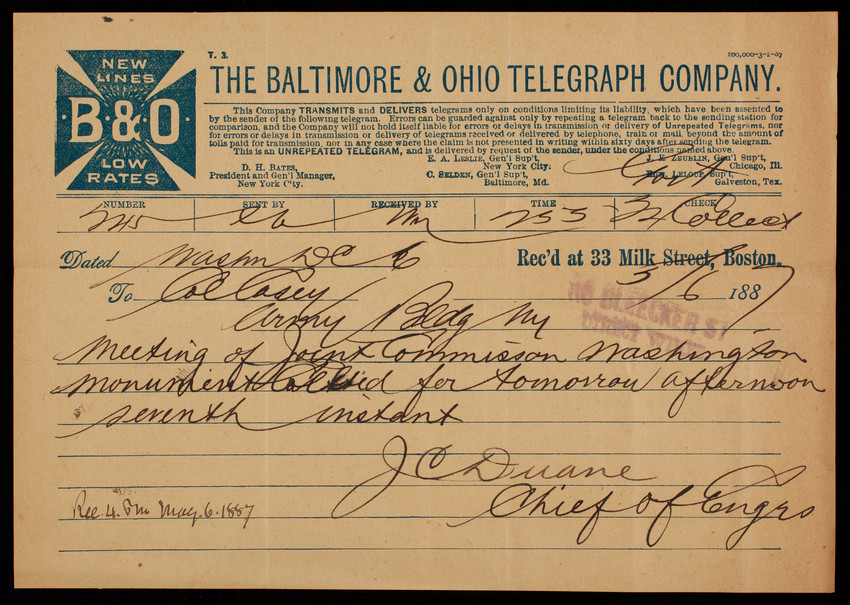 T. 3.
100,000-3-1-87
NEW
LINES
·B·&·O·
LOW
RATES
THE BALTIMORE & OHIO TELEGRAPH COMPANY.
This Company TRANSMITS and DELIVERS telegrams only on conditions limiting its liability, which have been assented to
by the sender of the following telegram. Errors can be guarded against only by repeating a telegram back to the sending station for
comparison, and the Company will not hold itself liable for errors or delays in transmission or delivery of Unrepeated Telegrams, nor
for errors or delays in transmission or delivery of telegrams received or delivered by telephone, train or mail beyond the amount of
tolls paid for transmission, nor in any case where the claim is not presented in writing within sixty days after sending the telegram.
This is an UNREPEATED TELEGRAM, and is delivered by request of the sender, under the conditions named above.
D. H. BATES,
President and Gen'l Manager,
New York City.
E. A. LESLIE, Gen'l Sup't,
New York City.
C. SELDEN, Gen'l Sup't,
Baltimore, Md.
J. E. ZEUBLIN, Gen'l Sup't,
Chicago, Ill.
Edw. LELOUP, Sup't,
Galveston, Tex.
Govt
NUMBER SENT BY RECEIVED BY TIME CHECK
245 253 Collect
Dated Washn DC 6 Rec'd at 33 Milk Street, Boston.
To Col Casey 5/6 1887
Army Bldg NY
Meeting of Joint Commisson Washington
monument Called for tomorrow afternoon
seventh instant
J C Duane
Chief of Engrs
Rec. 4. Pm May. 6. 1887
BLEECKER ST
DIRECT WIRE